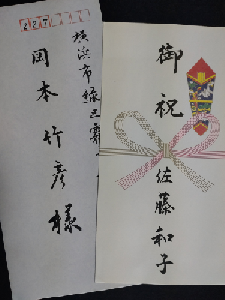 御祝
佐藤和子
227
横浜市緑区
岡本竹彦様